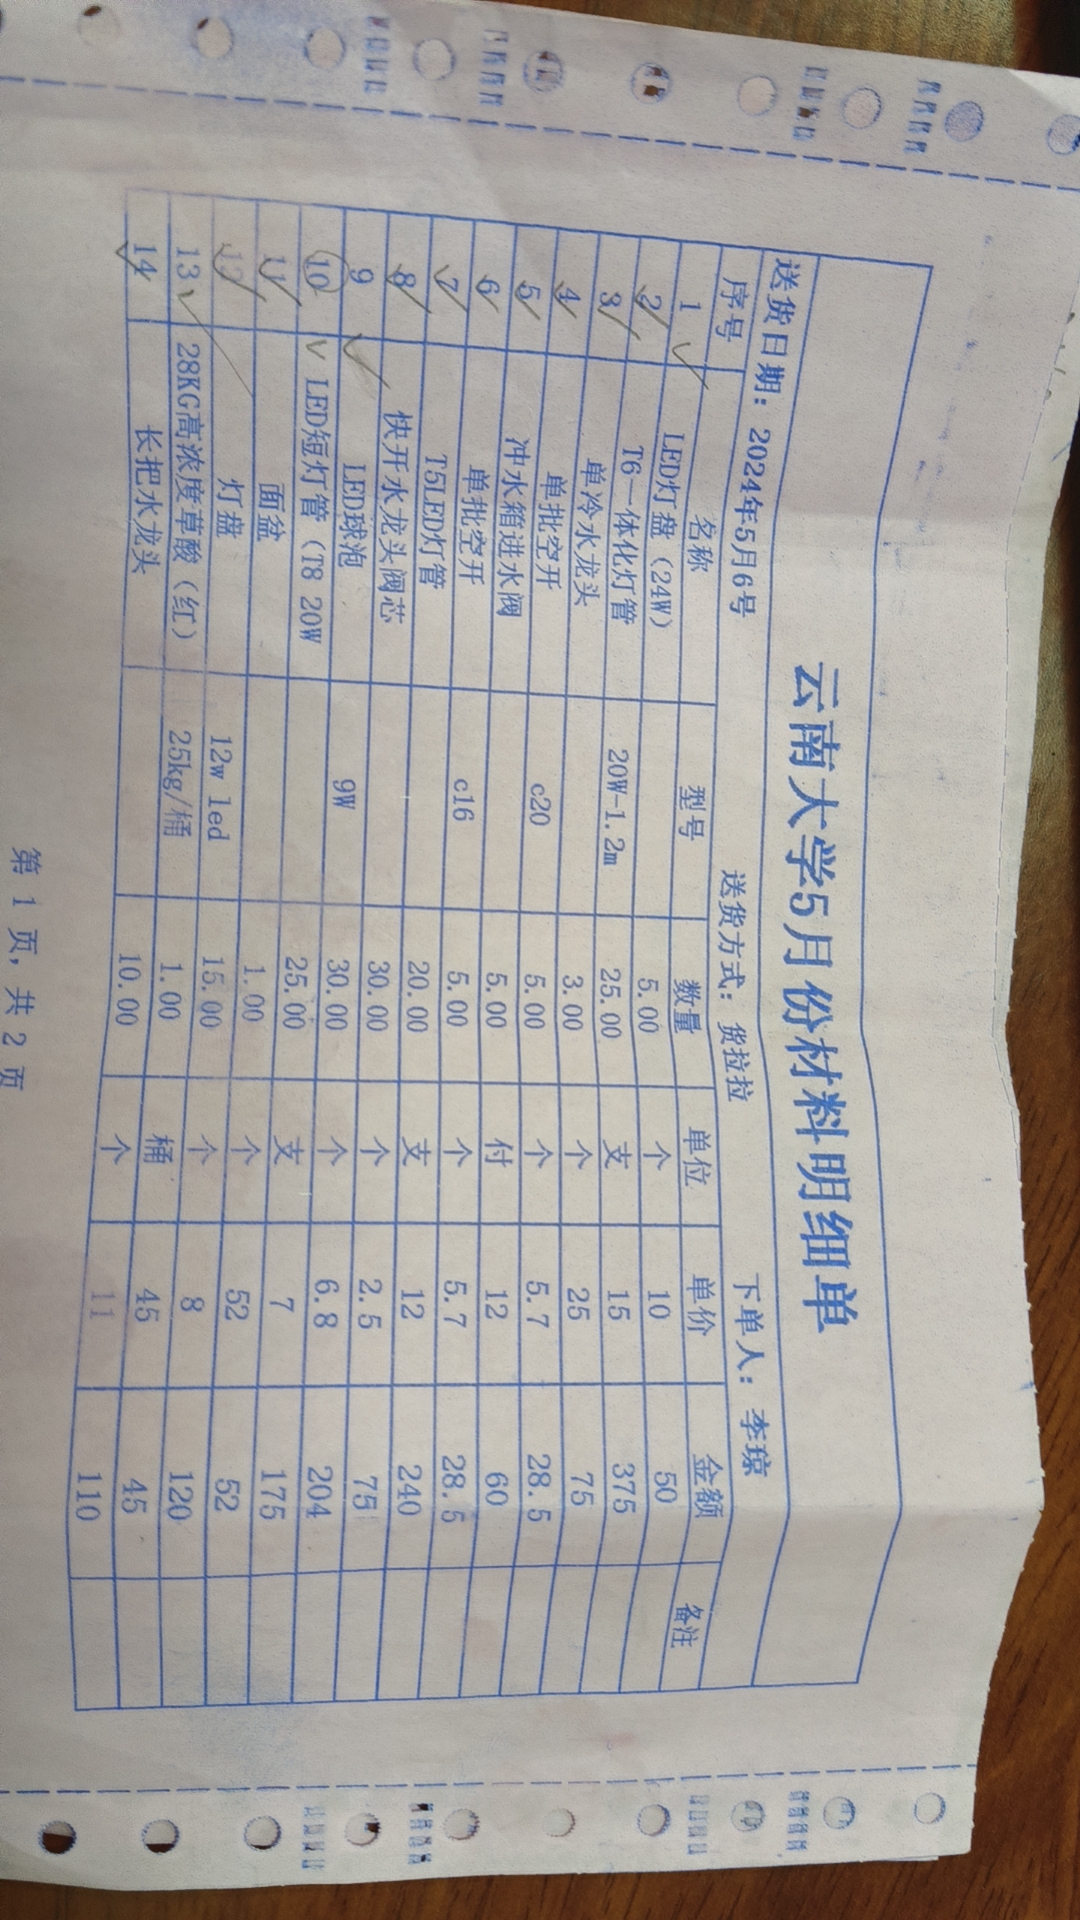 云南大学5月份材料明细单
送货日期：2024年5月6号 送货方式：货拉拉 下单人：李琼
序号 名称 型号 数量 单位 单价 金额 备注
1 LED灯盘（24W） 5.00 个 10 50
2 T6一体化灯管 20W-1.2m 25.00 支 15 375
3 单冷水龙头 3.00 个 25 75
4 单批空开 c20 5.00 个 5.7 28.5
5 冲水箱进水阀 5.00 付 12 60
6 单批空开 c16 5.00 个 5.7 28.5
7 T5LED灯管 20.00 支 12 240
8 快开水龙头阀芯 30.00 个 2.5 75
9 LED球泡 9W 30.00 个 6.8 204
10 LED短灯管（T8 20W 25.00 支 7 175
11 面盆 1.00 个 52 52
12 灯盘 12w led 15.00 个 8 120
13 28KG高浓度草酸（红） 25kg/桶 1.00 桶 45 45
14 长把水龙头 10.00 个 11 110
第 1 页，共 2 页